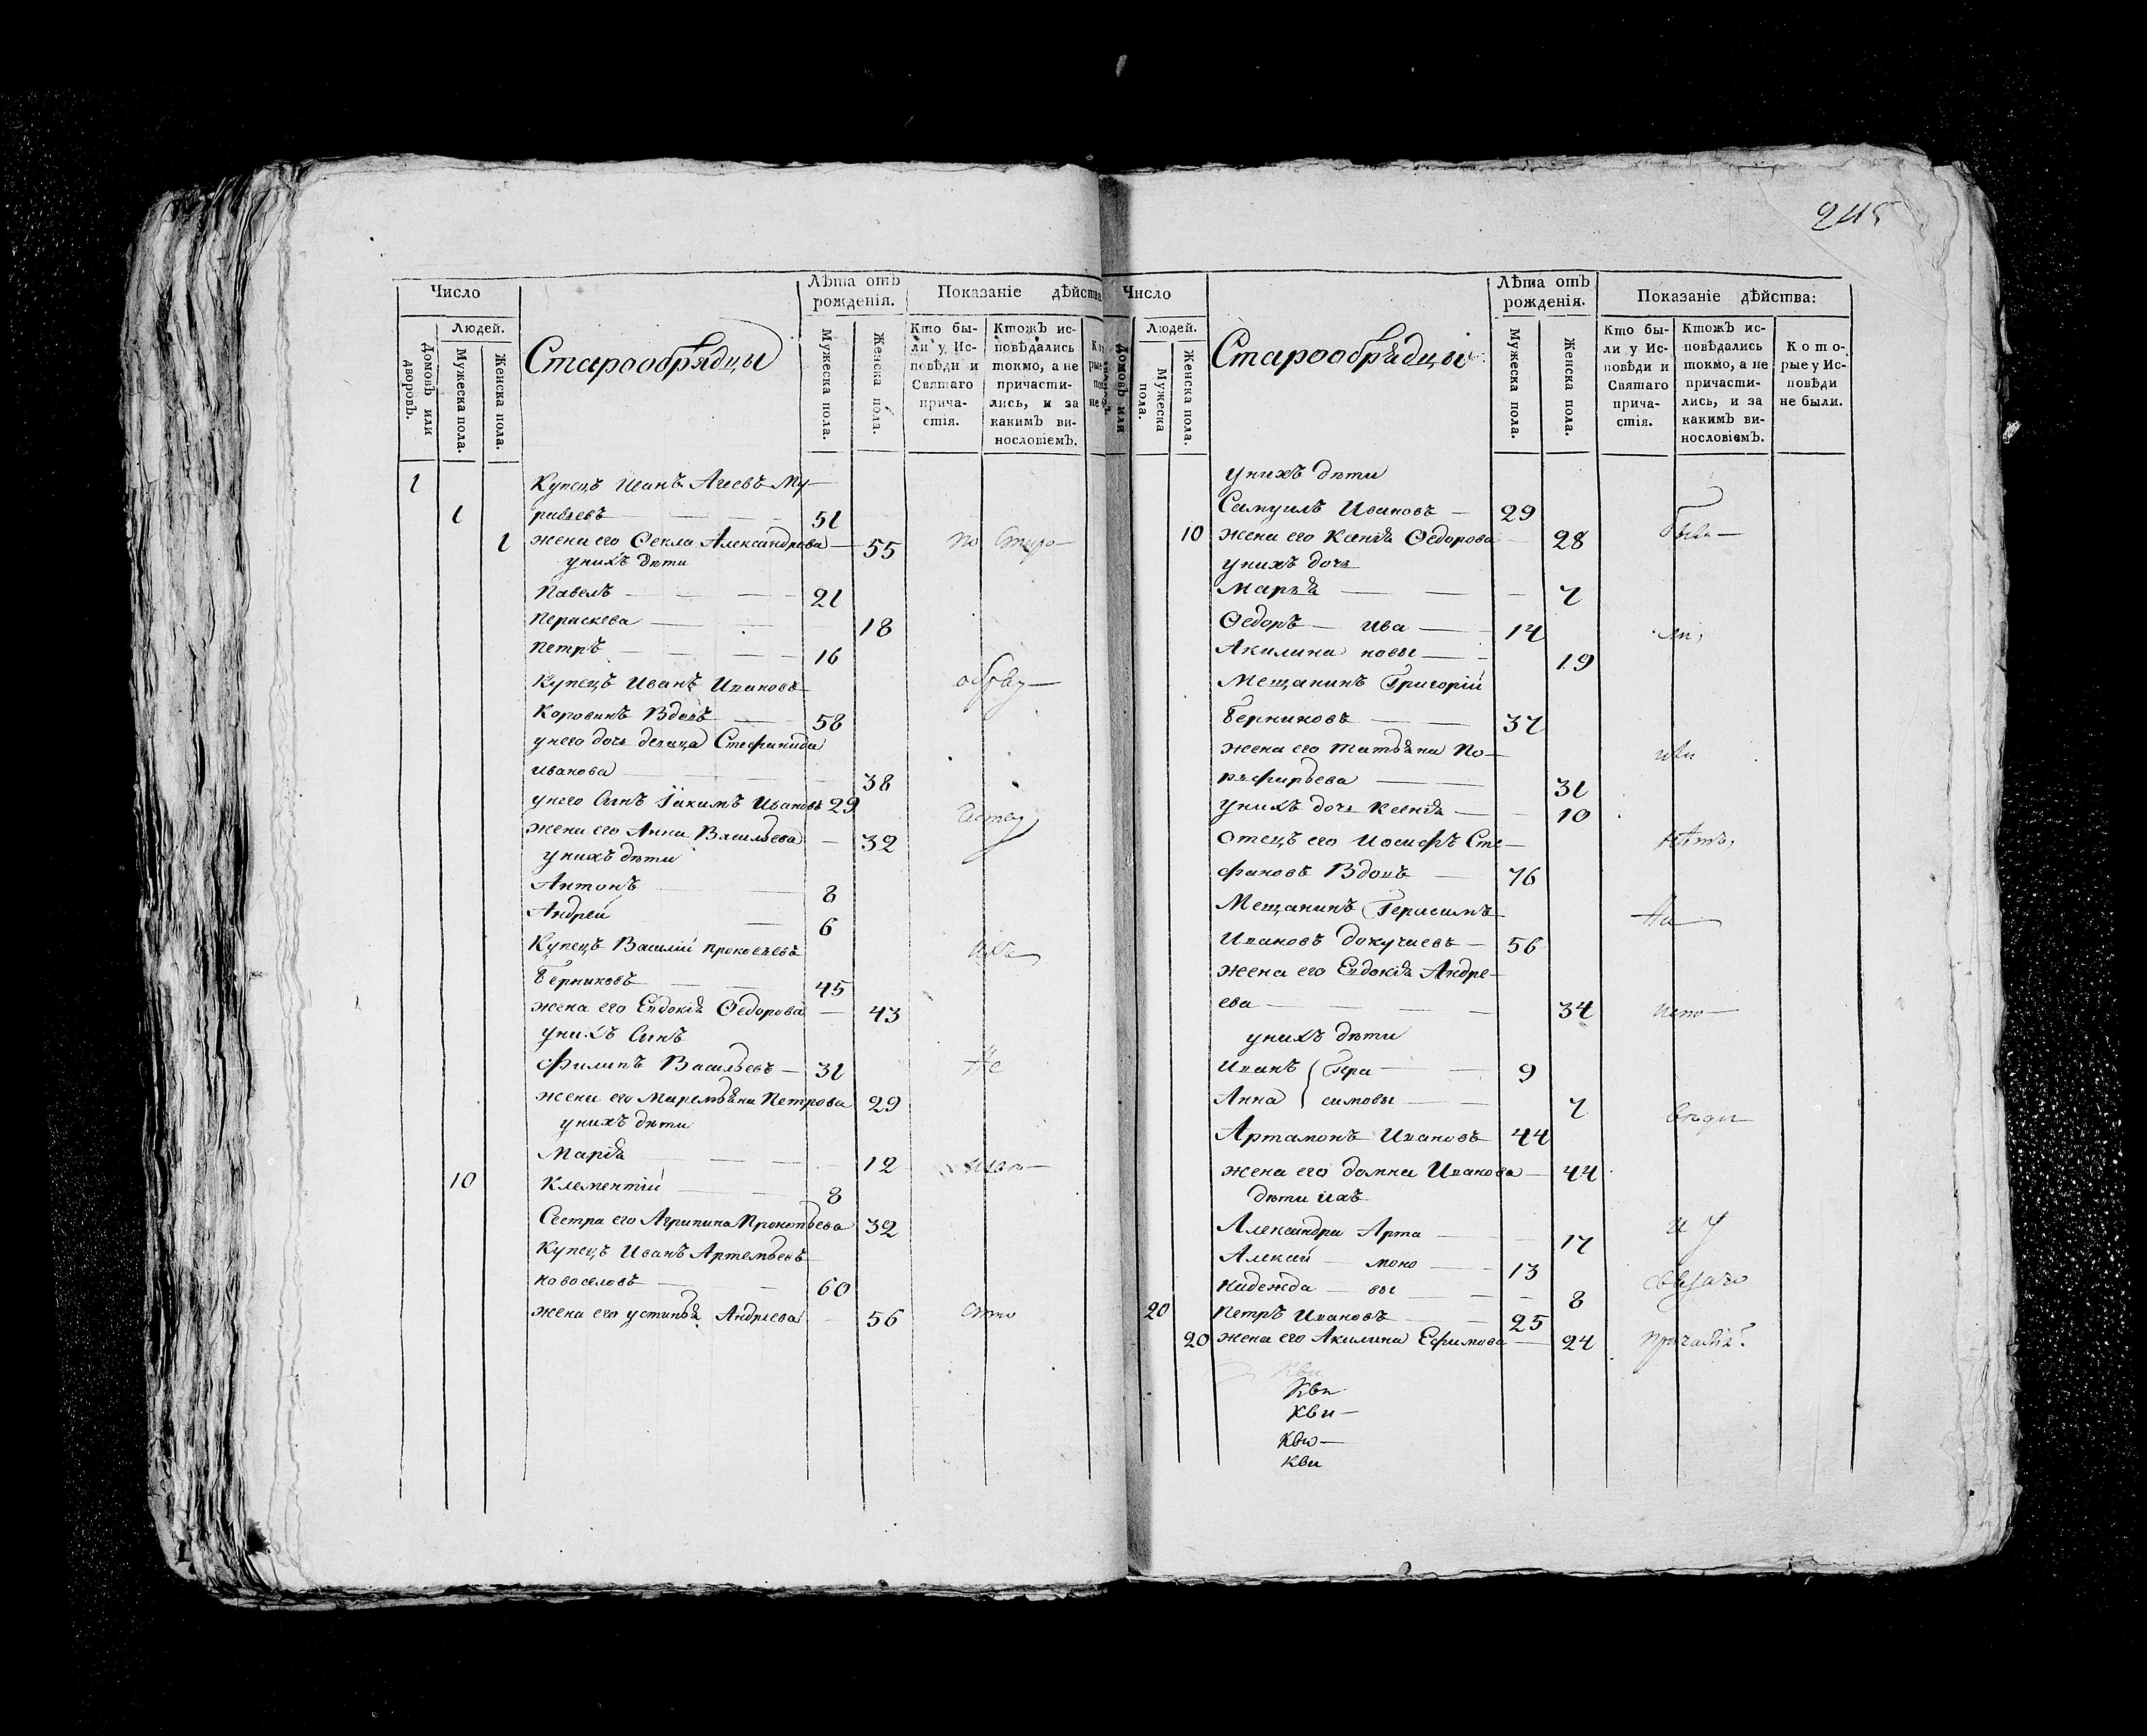 245
Число
Людей.
Домовъ или дворовъ.
Мужеска пола.
Женска пола.
Старообрядцы
Лѣта отъ рожденія.
Мужеска пола.
Женска пола.
Показаніе дѣйства
Кто бы-
ли у Ис-
повѣди и
Святаго
прича-
стія.
Ктожъ ис-
повѣдались
токмо, а не
причасти-
лись, и за
какимъ ви-
нословіемъ.
1 Купецъ Иванъ Агеевъ Му-
1 равьевъ 51
1 жена его Ѳекла Александрова 55 по Старо-
у нихъ дѣти
Павелъ 21
Параскева 18
Петръ 16
Купецъ Иванъ Ивановъ
Коровинъ Вдовъ 58
у него дочь девица Стефанида
Иванова 38
у него Сынъ Іакимъ Ивановъ 29
жена его Анна Васильева 32
у нихъ дѣти
Антонъ 8
Андрей 6
Купецъ Василій Прокопьевъ
Берниковъ 45
жена его Евдокія Ѳедорова 43
у нихъ Сынъ
Филипъ Васильевъ 31 Не
жена его Маремьяна Петрова 29
у нихъ дѣти
Марія 12
10 Клементій 8
Сестра его Агрипина Прокопьева 32
Купецъ Иванъ Артемьевъ
Новоселовъ 60
жена его Устинья Андреева 56
Число
Людей.
Домовъ или
Мужеска пола.
Женска пола.
Старообрядцы
Лѣта отъ рожденія.
Мужеска пола.
Женска пола.
Показаніе дѣйства:
Кто бы-
ли у Ис-
повѣди и
Святаго
прича-
стія.
Ктожъ ис-
повѣдались
токмо, а не
причасти-
лись, и за
какимъ ви-
нословіемъ.
Кото-
рые у Ис-
повѣди
не были.
у нихъ дѣти
Самуилъ Ивановъ 29
10 жена его Ксенія Ѳедорова 28
у нихъ дочь
Марья 7
Ѳедоръ Ива 14
Акилина новы 19
Мещанинъ Григорій
Берниковъ 37
жена его Татьяна По-
рфирьева 31
у нихъ дочь Ксенія 10
Отецъ его Іосифъ Сте-
фановъ Вдовъ 76
Мещанинъ Герасимъ
Ивановъ Докучаевъ 56 На
жена его Евдокія Андре-
ева 34 испо-
у нихъ дѣти
Иванъ Гера 9
Анна симовы 7
Артамонъ Ивановъ 44
жена его Домна Иванова 44
дѣти ихъ
Александра Арта 17
Алексій моно 13
Надежда вы 8
20 Петръ Ивановъ 25
20 жена его Акилина Ефимова 24